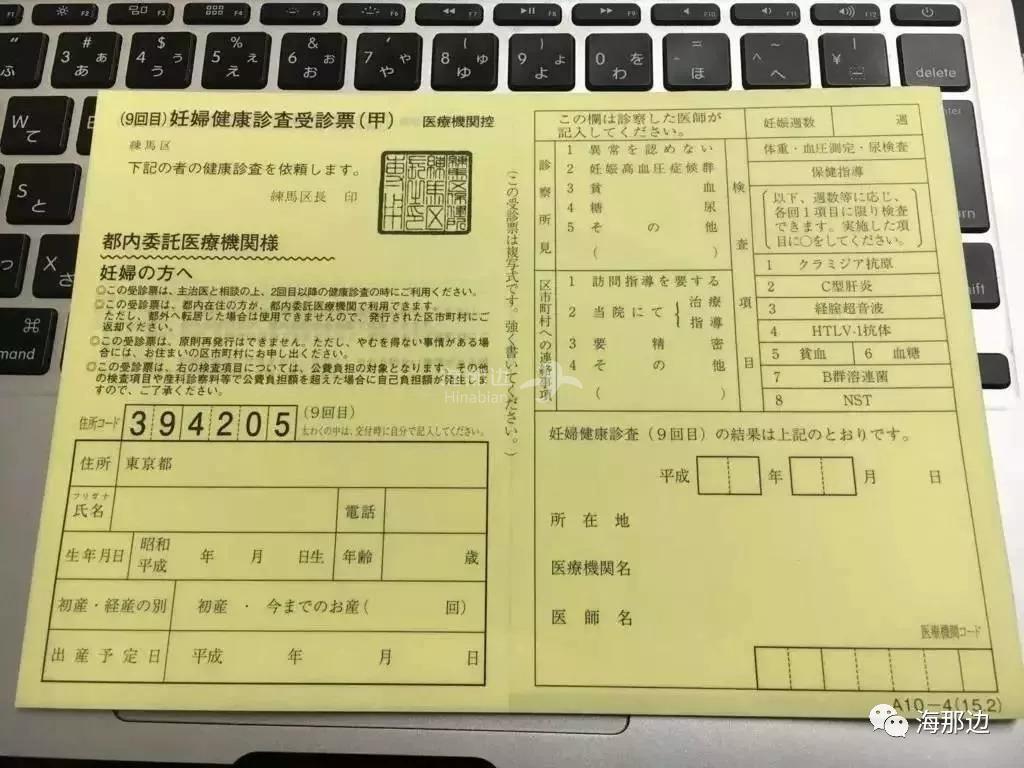 (9回目)妊婦健康診査受診票(甲) 医療機関控
練馬区
下記の者の健康診査を依頼します。
練馬区長 印
都内委託医療機関様
妊婦の方へ
◎この受診票は、主治医と相談の上、2回目以降の健康診査の時にご利用ください。
◎この受診票は、都内在住の方が、都内委託医療機関で利用できます。
ただし、都外へ転居した場合は使用できませんので、発行された区市町村にご
返却ください。
◎この受診票は、原則再発行はできません。ただし、やむを得ない事情がある場
合には、お住まいの区市町村にお申し出ください。
◎この受診票は、右の検査項目については、公費負担の対象となります。その他
の検査項目や産科診察料等で公費負担額を超えた場合に自己負担額が発生しま
すので、ご了承ください。
住所コード 394205 (9回目)
太わくの中は、交付時に自分で記入してください。
住所 東京都
フリガナ
氏名 電話
生年月日 昭和 平成 年 月 日生 年齢 歳
初産・経産の別 初産 ・ 今までのお産( 回)
出産予定日 平成 年 月 日
(この受診票は複写式です。強く書いてください。)
この欄は診察した医師が
記入してください。
妊娠週数 週
診察所見
1 異常を認めない
2 妊娠高血圧症候群
3 貧血
4 糖尿
5 その他
( )
区市町村への連絡事項
1 訪問指導を要する
2 当院にて { 治療 指導
3 要精密
4 その他
( )
検査項目
体重・血圧測定・尿検査
保健指導
以下、週数等に応じ、
各回1項目に限り検査
できます。実施した項
目に○をしてください。
1 クラミジア抗原
2 C型肝炎
3 経腟超音波
4 HTLV-1抗体
5 貧血 6 血糖
7 B群溶連菌
8 NST
妊婦健康診査(9回目)の結果は上記のとおりです。
平成 年 月 日
所在地
医療機関名
医師名
医療機関コード
A10-4(15.2)
海那边
Hinabian
海那边
delete
command